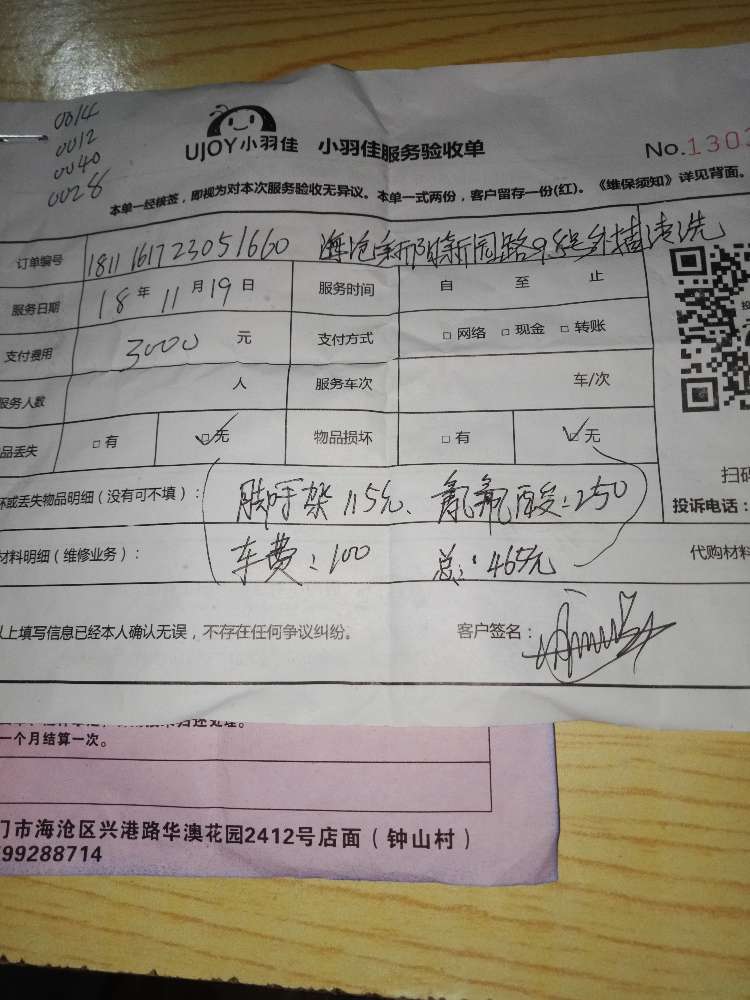 0014
0012
0040
0028
UJOY小羽佳 小羽佳服务验收单
No.1303
本单一经核签，即视为对本次服务验收无异议。本单一式两份，客户留存一份(红)。《维保须知》详见背面。
订单编号 181116172305 1660 海沧新阳新园路9号外墙清洗
服务日期 18年11月19日 服务时间 自 至 止
支付费用 3000 元 支付方式 □网络 □现金 □转账
服务人数 人 服务车次 车/次
品丢失 □有 ☑无 物品损坏 □有 ☑无
坏或丢失物品明细（没有可不填）： 脚手架115元、氢氟酸：250
扫码
投诉电话：
材料明细（维修业务）： 车费：100 总：465元
代购材料
以上填写信息已经本人确认无误，不存在任何争议纠纷。 客户签名：
一个月结算一次。
门市海沧区兴港路华澳花园2412号店面（钟山村）
99288714